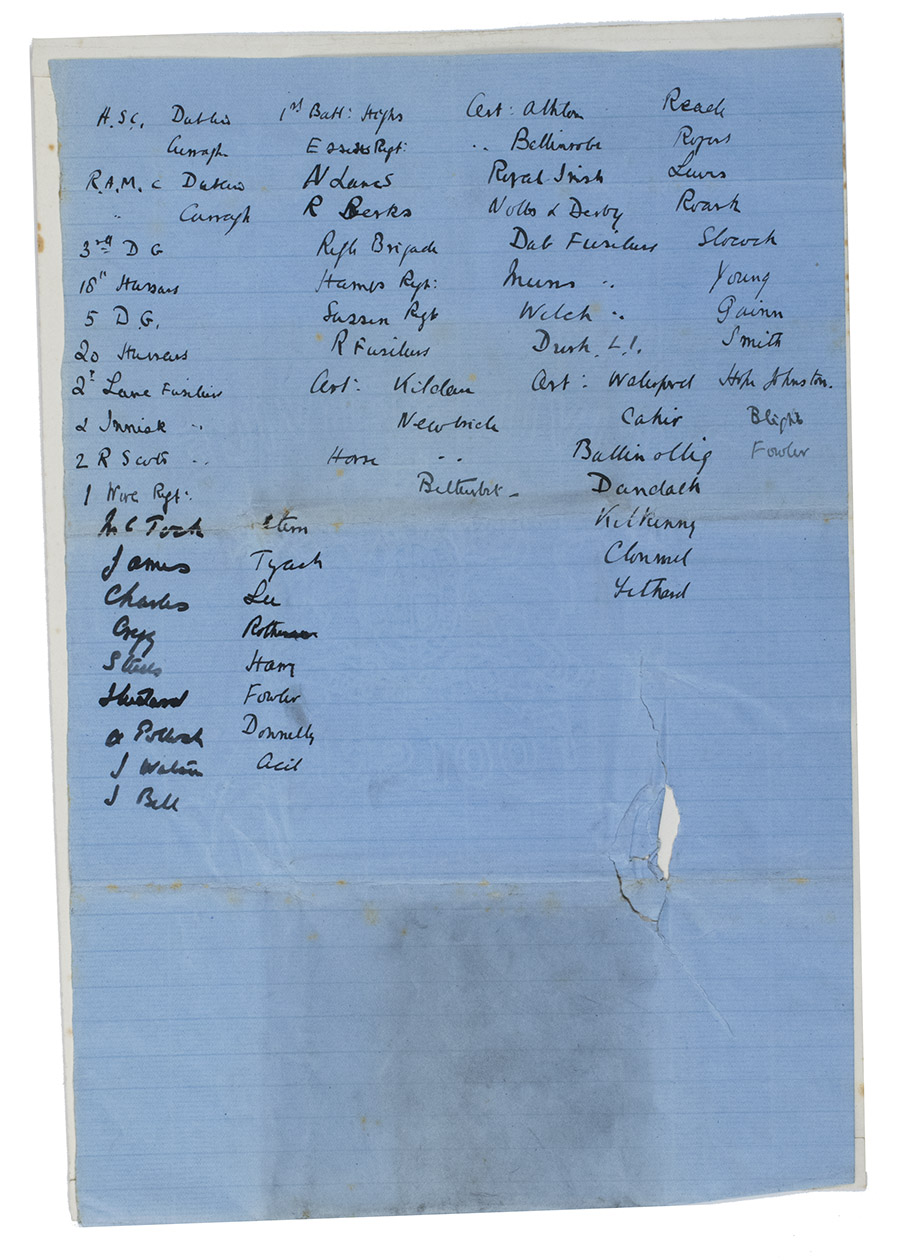 A.S.C. Dublin 1st Batt: Highs Art: Athlon Reade
Curragh Essex Regt: " Ballinrobe Rogers
R.A.M.C Dublin N Lancs Royal Irish Lewis
" Curragh R Berks Notts & Derby Roark
3rd D G Rifle Brigade Dub Fusiliers Slocock
18th Hussars Hamps Regt: Muns " Young
5 D.G. Sussex Regt Welch " Gainn
20 Hussars R Fusiliers Durh. L.I. Smith
2d Lanc Fusiliers Art: Kildare Art: Waterford Hope Johnston.
2 Innisk " Newbridge Cahir Blight
2 R Scots " Horse " Ballincollig Fowler
1 Worc Regt: Belturbet - Dundalk
Mc Tock Stern Kilkenny
James Tyach Clonmel
Charles Lee Fethard
Gregg
Steels Harry
Fowler
A Pollock Donnelly
J Watson Acil
J Bell